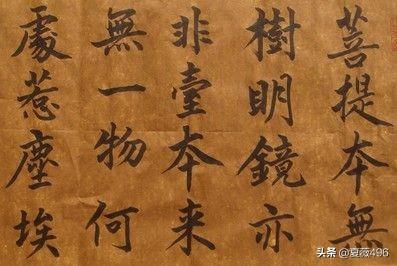 菩提本無
樹明鏡亦
非臺本来
無一物何
處惹塵埃
头条 @夏薇496